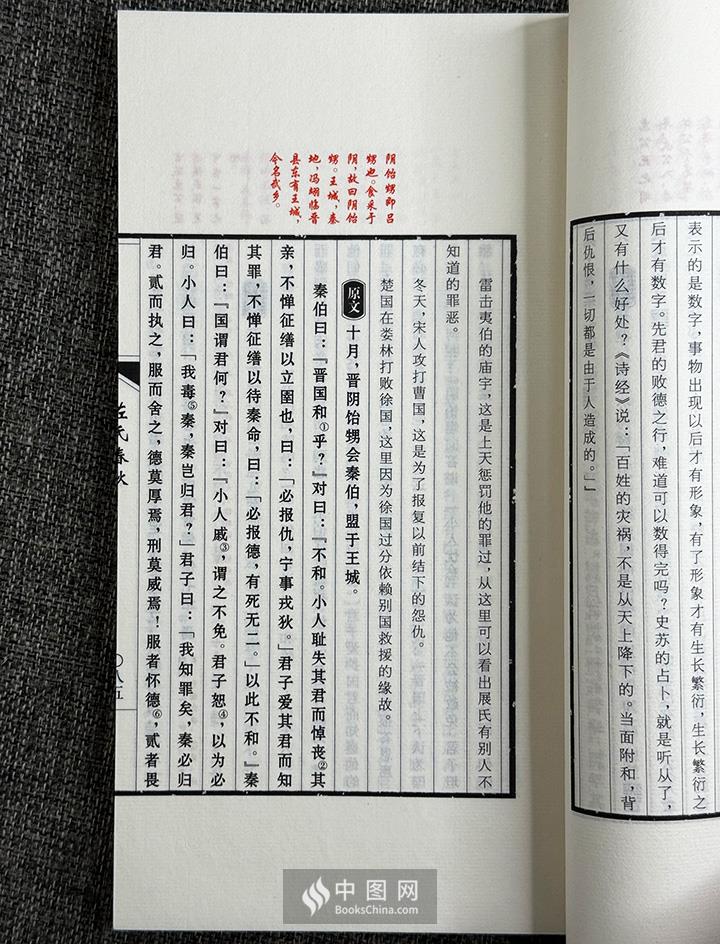 表示的是数字，事物出现以后才有形象，有了形象才有生长繁衍，生长繁衍之
后才有数字。先君的败德之行，难道可以数得完吗？史苏的占卜，就是听从了，
又有什么好处？《诗经》说：「百姓的灾祸，不是从天上降下的。当面附和，背
后仇恨，一切都是由于人造成的。」」
阴饴甥即吕
甥也。食采于
阴，故曰阴饴
甥。王城，秦
地，冯翊临晋
县东有王城，
今名武乡。
雷击夷伯的庙宇，这是上天惩罚他的罪过，从这里可以看出展氏有别人不
知道的罪恶。
冬天，宋人攻打曹国，这是为了报复以前结下的怨仇。
楚国在娄林打败徐国，这里因为徐国过分依赖别国救援的缘故。
原文 十月，晋阴饴甥会秦伯，盟于王城。
秦伯曰：「晋国和①乎？」对曰：「不和。小人耻失其君而悼丧②其
亲，不惮征缮以立圉也，曰：「必报仇，宁事戎狄。」君子爱其君而知
其罪，不惮征缮以待秦命，曰：「必报德，有死无二。」以此不和。」秦
伯曰：「国谓君何？」对曰：「小人戚③，谓之不免。君子恕④，以为必
归。小人曰：「我毒⑤秦，秦岂归君？」君子曰：「我知罪矣，秦必归
君。贰而执之，服而舍之，德莫厚焉，刑莫威焉！服者怀德⑥，贰者畏
左氏春秋
〇八五
中图网
BooksChina.com